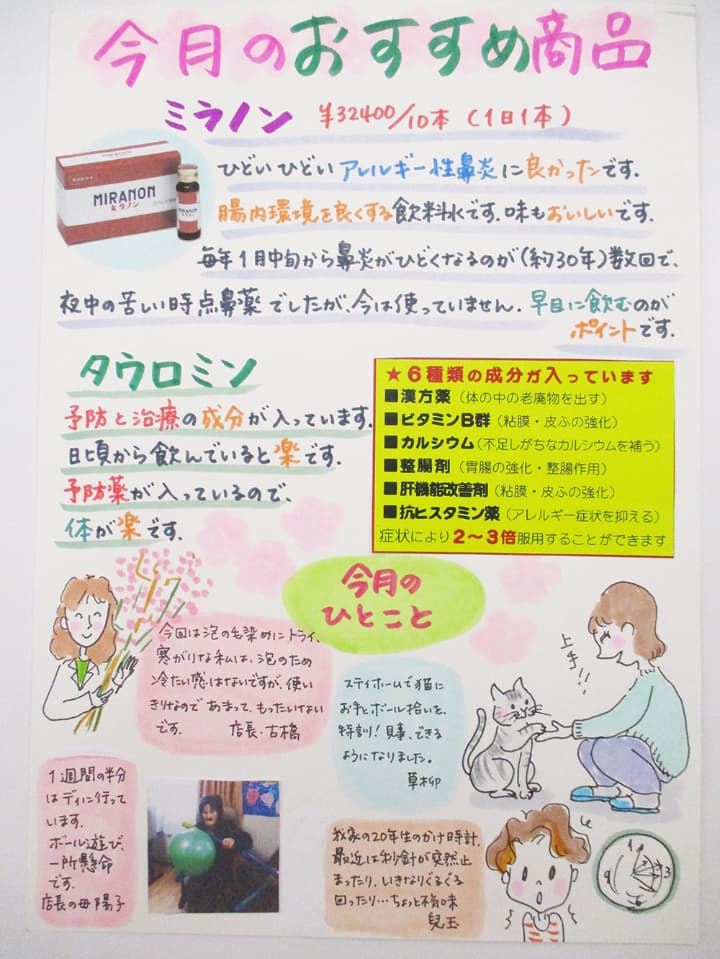 今月のおすすめ商品
ミラノン ¥32400/10本(1日1本)
MIRANON
ミラノン
MIRANON
ひどいひどいアレルギー性鼻炎に良かったです。
腸内環境を良くする飲料水です。味もおいしいです。
毎年1月中旬から鼻炎がひどくなるのが(約30年)数回で、
夜中の苦しい時点鼻薬でしたが、今は使っていません。早目に飲むのが
ポイントです。
タウロミン
予防と治療の成分が入っています。
日頃から飲んでいると楽です。
予防薬が入っているので、
体が楽です。
★6種類の成分が入っています
■漢方薬(体の中の老廃物を出す)
■ビタミンB群(粘膜・皮ふの強化)
■カルシウム(不足しがちなカルシウムを補う)
■整腸剤(胃腸の強化・整腸作用)
■肝機能改善剤(粘膜・皮ふの強化)
■抗ヒスタミン薬(アレルギー症状を抑える)
症状により2〜3倍服用することができます
今月の
ひとこと
今回は泡の毛染めにトライ、
寒がりな私は、泡のため
冷たい感はないですが、使い
きりなので あまって、もったいない
です。 店長・古橋
ステイホームで猫に
お手とボール拾いを、
特訓!見事、できる
ようになりました。
草柳
上手!!
1週間の半分
はデイに行って
います。
ボール遊び、
一所懸命
です。
店長の母陽子
我家の20年生のかけ時計、
最近は秒針が突然止
まったり、いきなりぐるぐる
回ったり…ちょっと不気味
児玉
3